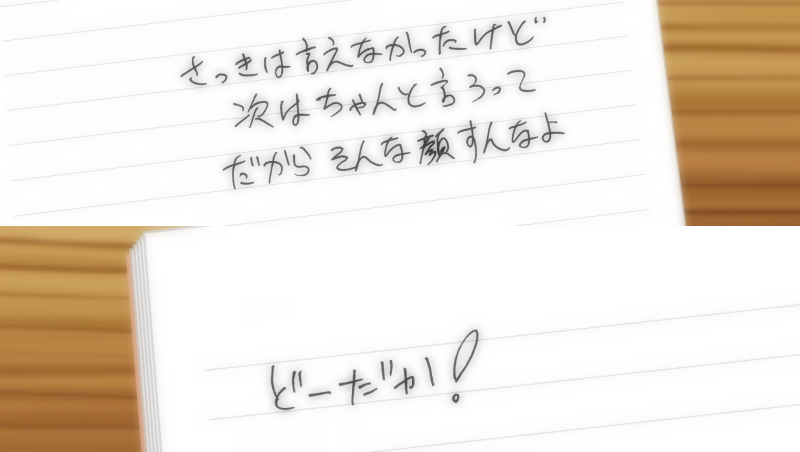 さっきは言えなかったけど
次はちゃんと言うって
だから そんな顔すんなよ
どーだか!